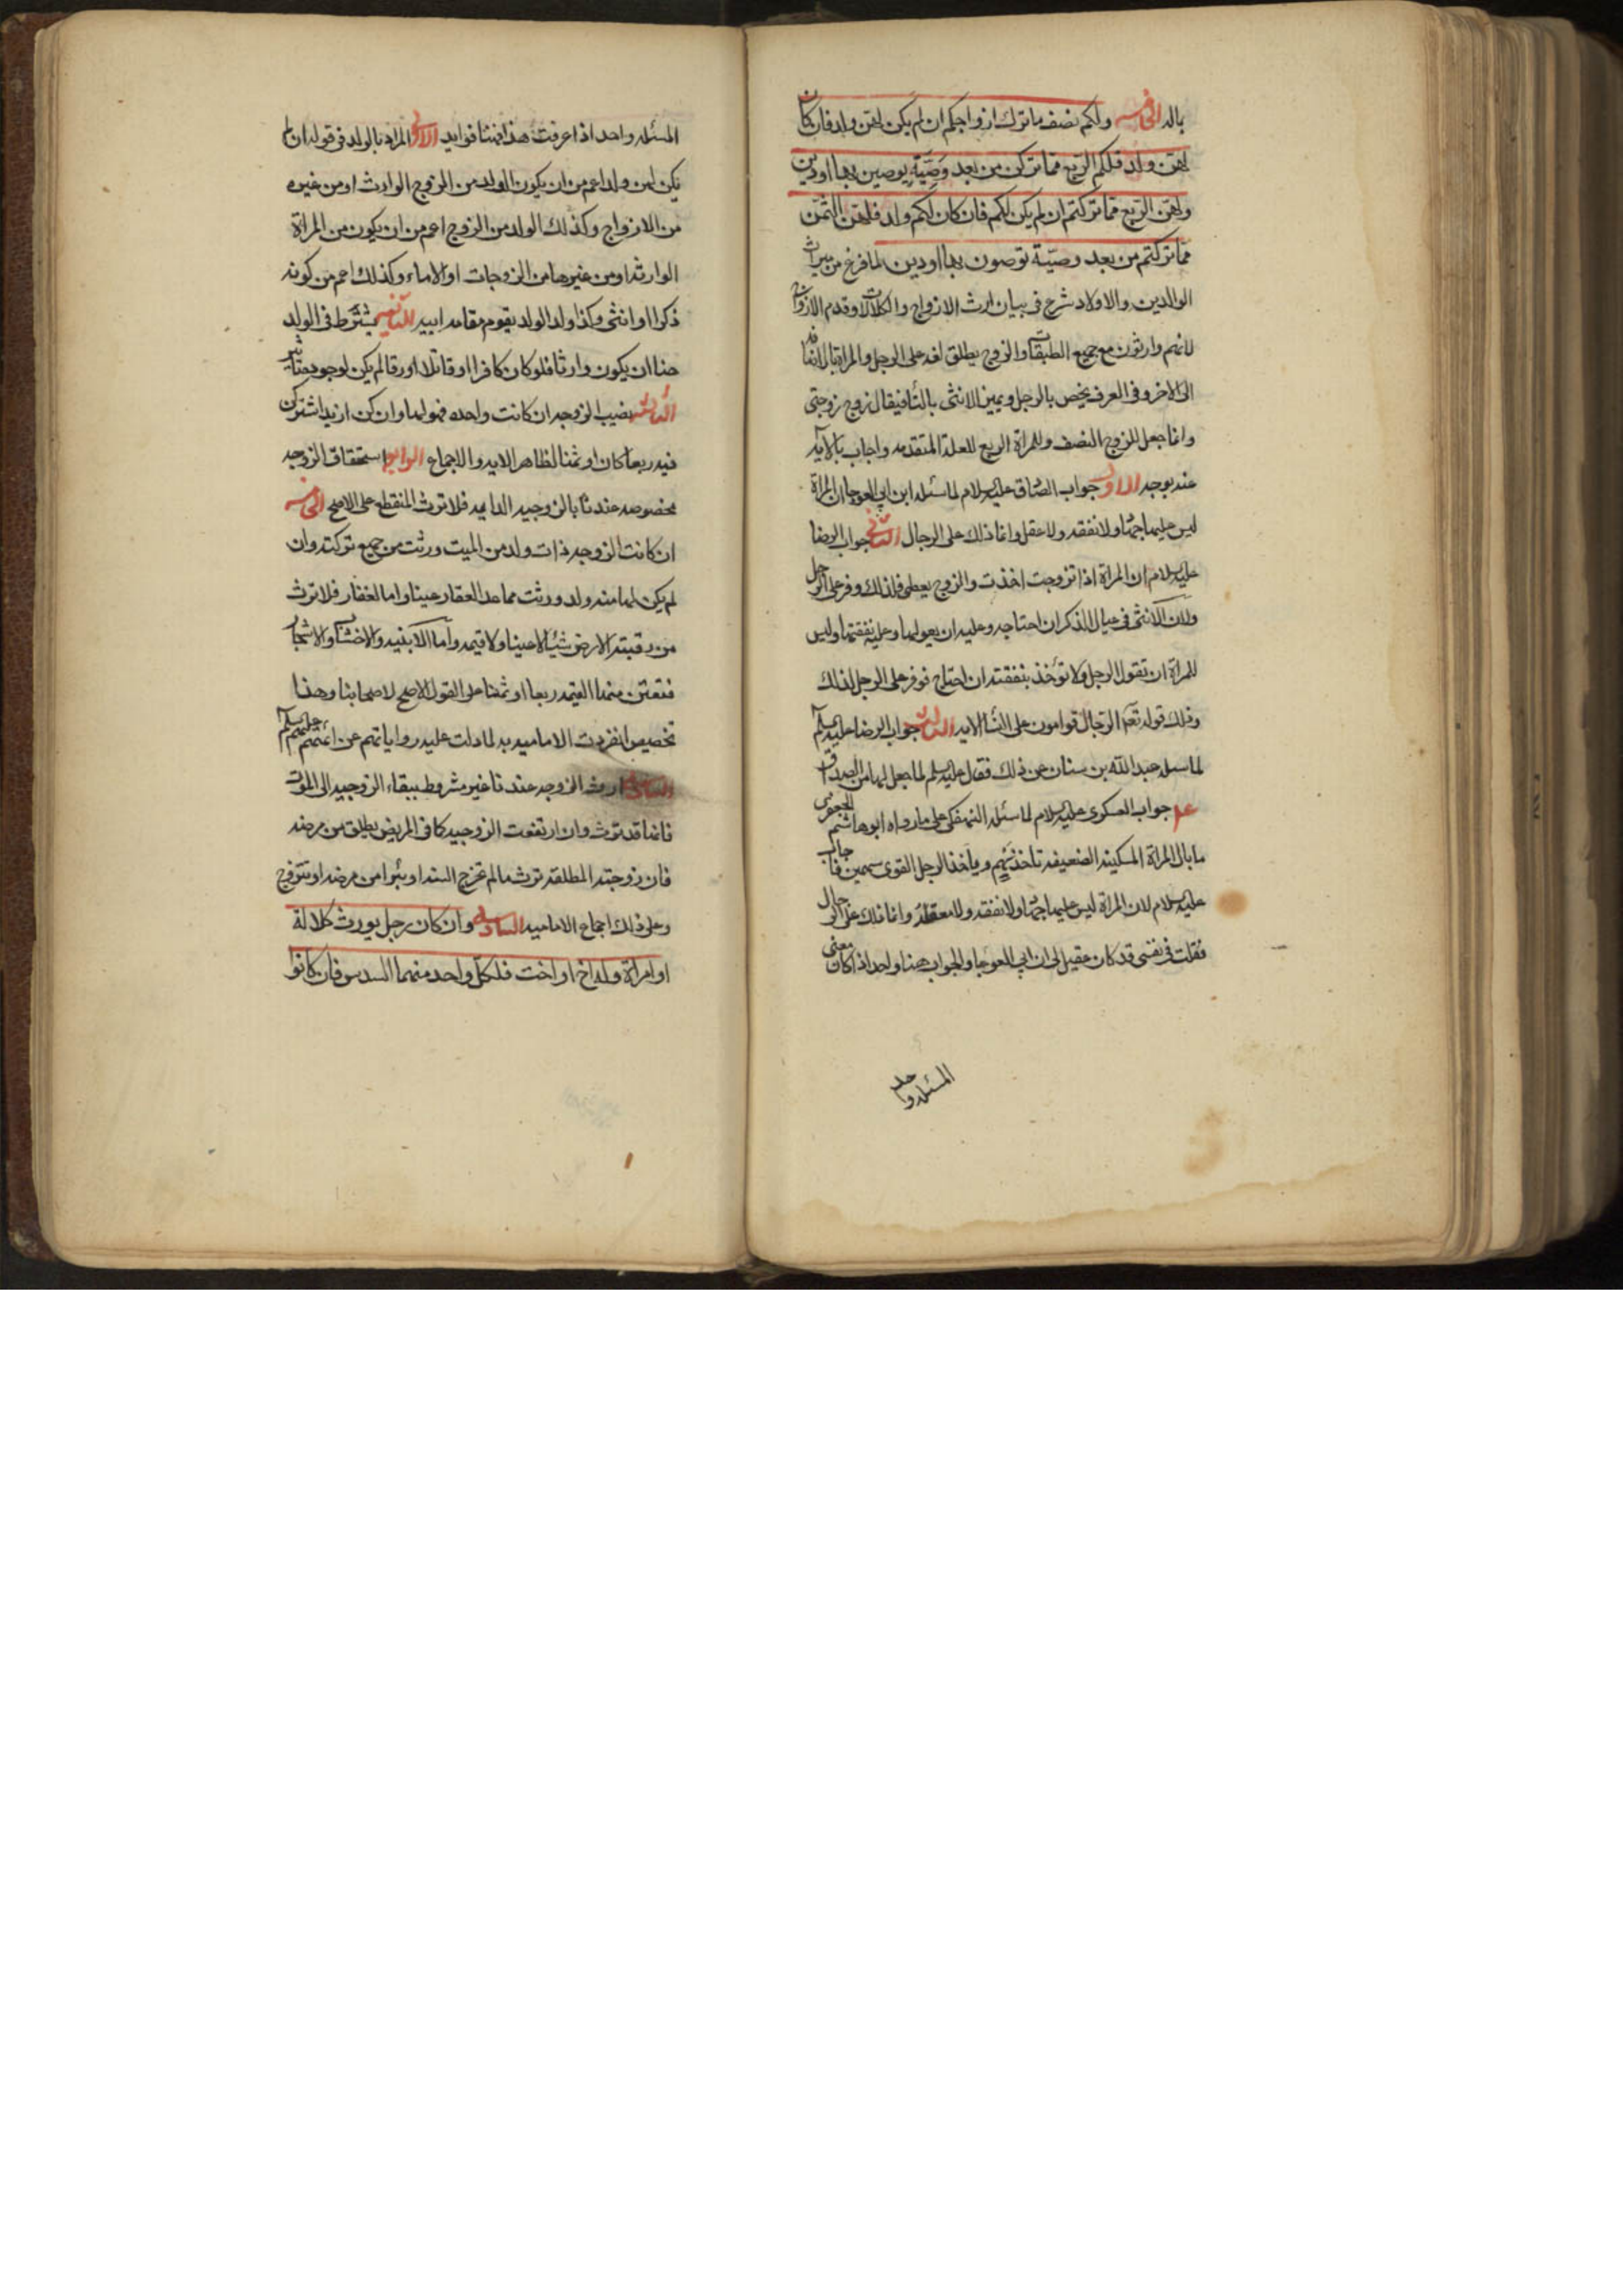 بالله الخامسه ولكم نصف ما ترك ازواجكم ان لم يكن لهن ولد فان كان
لهن ولد فلكم الربع مما تركن من بعد وصية يوصين بها او دين
ولهن الربع مما تركتم ان لم يكن لكم ولد فان كان لكم ولد فلهن الثمن
مما تركتم من بعد وصية توصون بها او دين لما فرغ من ميراث
الوالدين والاولاد شرع في بيان ارث الازواج والكلالات وقدم الازواج
لانهم وارثون مع جميع الطبقات والزوج يطلق لغه على الرجل والمراة بالاضافه
الى الاخر وفى العرف يخص بالرجل ويميز الانثى بالتاء فيقال زوج زوجتى
وانما جعل للزوج النصف وللمراة الربع للعلة المتقدمه واجاب بالايه
عنه بوجه الاول جواب الصادق عليه السلام لما سئله ابن ابي العوجا ان المراة
ليس عليها جهاد ولا نفقه ولا عقل وانما ذلك على الرجال الثانى جواب الرضا
عليه السلام ان المراة اذا تزوجت اخذت والزوج يعطى فلذلك وفر على الرجل
ولان الانثى في عيال الذكر ان احتاجه وعليه ان يعولها وعليه نفقتها وليس
للمراة ان تقول الرجل ولا تؤخذ بنفقته ان احتاج فوفر على الرجل لذلك
وذلك قوله تعالى الرجال قوامون على النسا الايه الثالث جواب الرضا عليه السلم
لما سئله عبد الله بن سنان عن ذلك فقال عليه السلم لما جعل لها من الصداق
جواب العسكرى عليه السلام لما سئله النهفكى على ما رواه ابو هاشم الجعفرى
ما بال المراة المسكينة الضعيفه تاخذ سهم وياخذ الرجل القوى سهمين فاجاب
عليه السلام لان المراة ليس عليها جهاد ولا نفقه ولا معقله وانما ذلك على الرجال
فقلت فى نفسى قد كان قيل لى ان ابن ابي العوجا والجواب هنا واحد اذا كان معنى
المسئله واحد
المسئله واحد اذا عرفت هذا فهنا فوايد الاولى المراد بالولد فى قوله ان لم
يكن لهن ولد اعم من ان يكون الولد من الزوج الوارث او من غيره
من الازواج وكذلك الولد من الزوج اعم من ان يكون من المراة
الوارثه او من غيرها من الزوجات او الاماء وكذلك اعم من كونه
ذكرا او انثى وكذا ولد الولد يقوم مقام ابيه الثانيه يشترط فى الولد
هنا ان يكون وارثا فلو كان كافرا او قاتلا او رقا لم يكن لوجوده تاثير
الثالثه نصيب الزوجه ان كانت واحده فهو لها وان كن ازيد اشتركن
فيه ربعا كان او ثمنا لظاهر الايه والاجماع الرابعه استحقاق الزوجه
مخصوصه عندنا بالزوجيه الدايمه فلا ترث المنقطع على الاصح الخامسه
ان كانت الزوجه ذات ولد من الميت ورثت من جميع تركته وان
لم يكن لها منه ولد ورثت مما عدا العقار عينا واما العقار فلا ترث
من رقبته الارض شيئا لا عينا ولا قيمه واما الابنيه والاخشاب والاشجار
فتعتن منها القيمه ربعا او ثمنا على القول الاصح لاصحابنا وهذا
تخصيص انفردت الاماميه به لما دلت عليه رواياتهم عن ائمتهم عليهم السلم
السادسه ارث الزوجه عندنا غير مشروط ببقاء الزوجيه الى الموت
فانها قد ترث وان ارتفعت الزوجيه كما فى المريض يطلق من مرضه
فان زوجته المطلقه ترثه ما لم تخرج السنه او يبرا من مرضه او تتزوج
وعلى ذلك اجماع الاماميه السادسه وان كان رجل يورث كلالة
او امراة وله اخ او اخت فلكل واحد منهما السدس فان كانوا